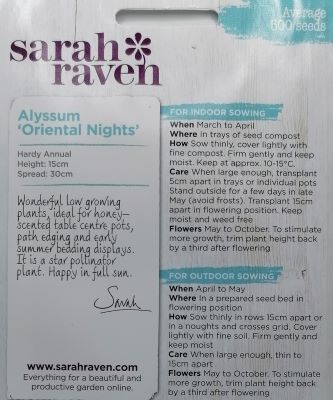 Average
600 seeds
sarah
raven
Alyssum
'Oriental Nights'
Hardy Annual
Height: 15cm
Spread: 30cm
Wonderful low growing
plants, ideal for honey-
scented table centre pots,
path edging and early
summer bedding displays.
It is a star pollinator
plant. Happy in full sun.
Sarah
www.sarahraven.com
Everything for a beautiful and
productive garden online.
FOR INDOOR SOWING
When March to April
Where In trays of seed compost
How Sow thinly, cover lightly with
fine compost. Firm gently and keep
moist. Keep at approx. 10-15°C.
Care When large enough, transplant
5cm apart in trays or individual pots
Stand outside for a few days in late
May (avoid frosts). Transplant 15cm
apart in flowering position. Keep
moist and weed free
Flowers May to October. To stimulate
more growth, trim plant height back
by a third after flowering
FOR OUTDOOR SOWING
When April to May
Where In a prepared seed bed in
flowering position
How Sow thinly in rows 15cm apart or
in a noughts and crosses grid. Cover
lightly with fine soil. Firm gently and
keep moist
Care When large enough, thin to
15cm apart
Flowers May to October. To stimulate
more growth, trim plant height back
by a third after flowering